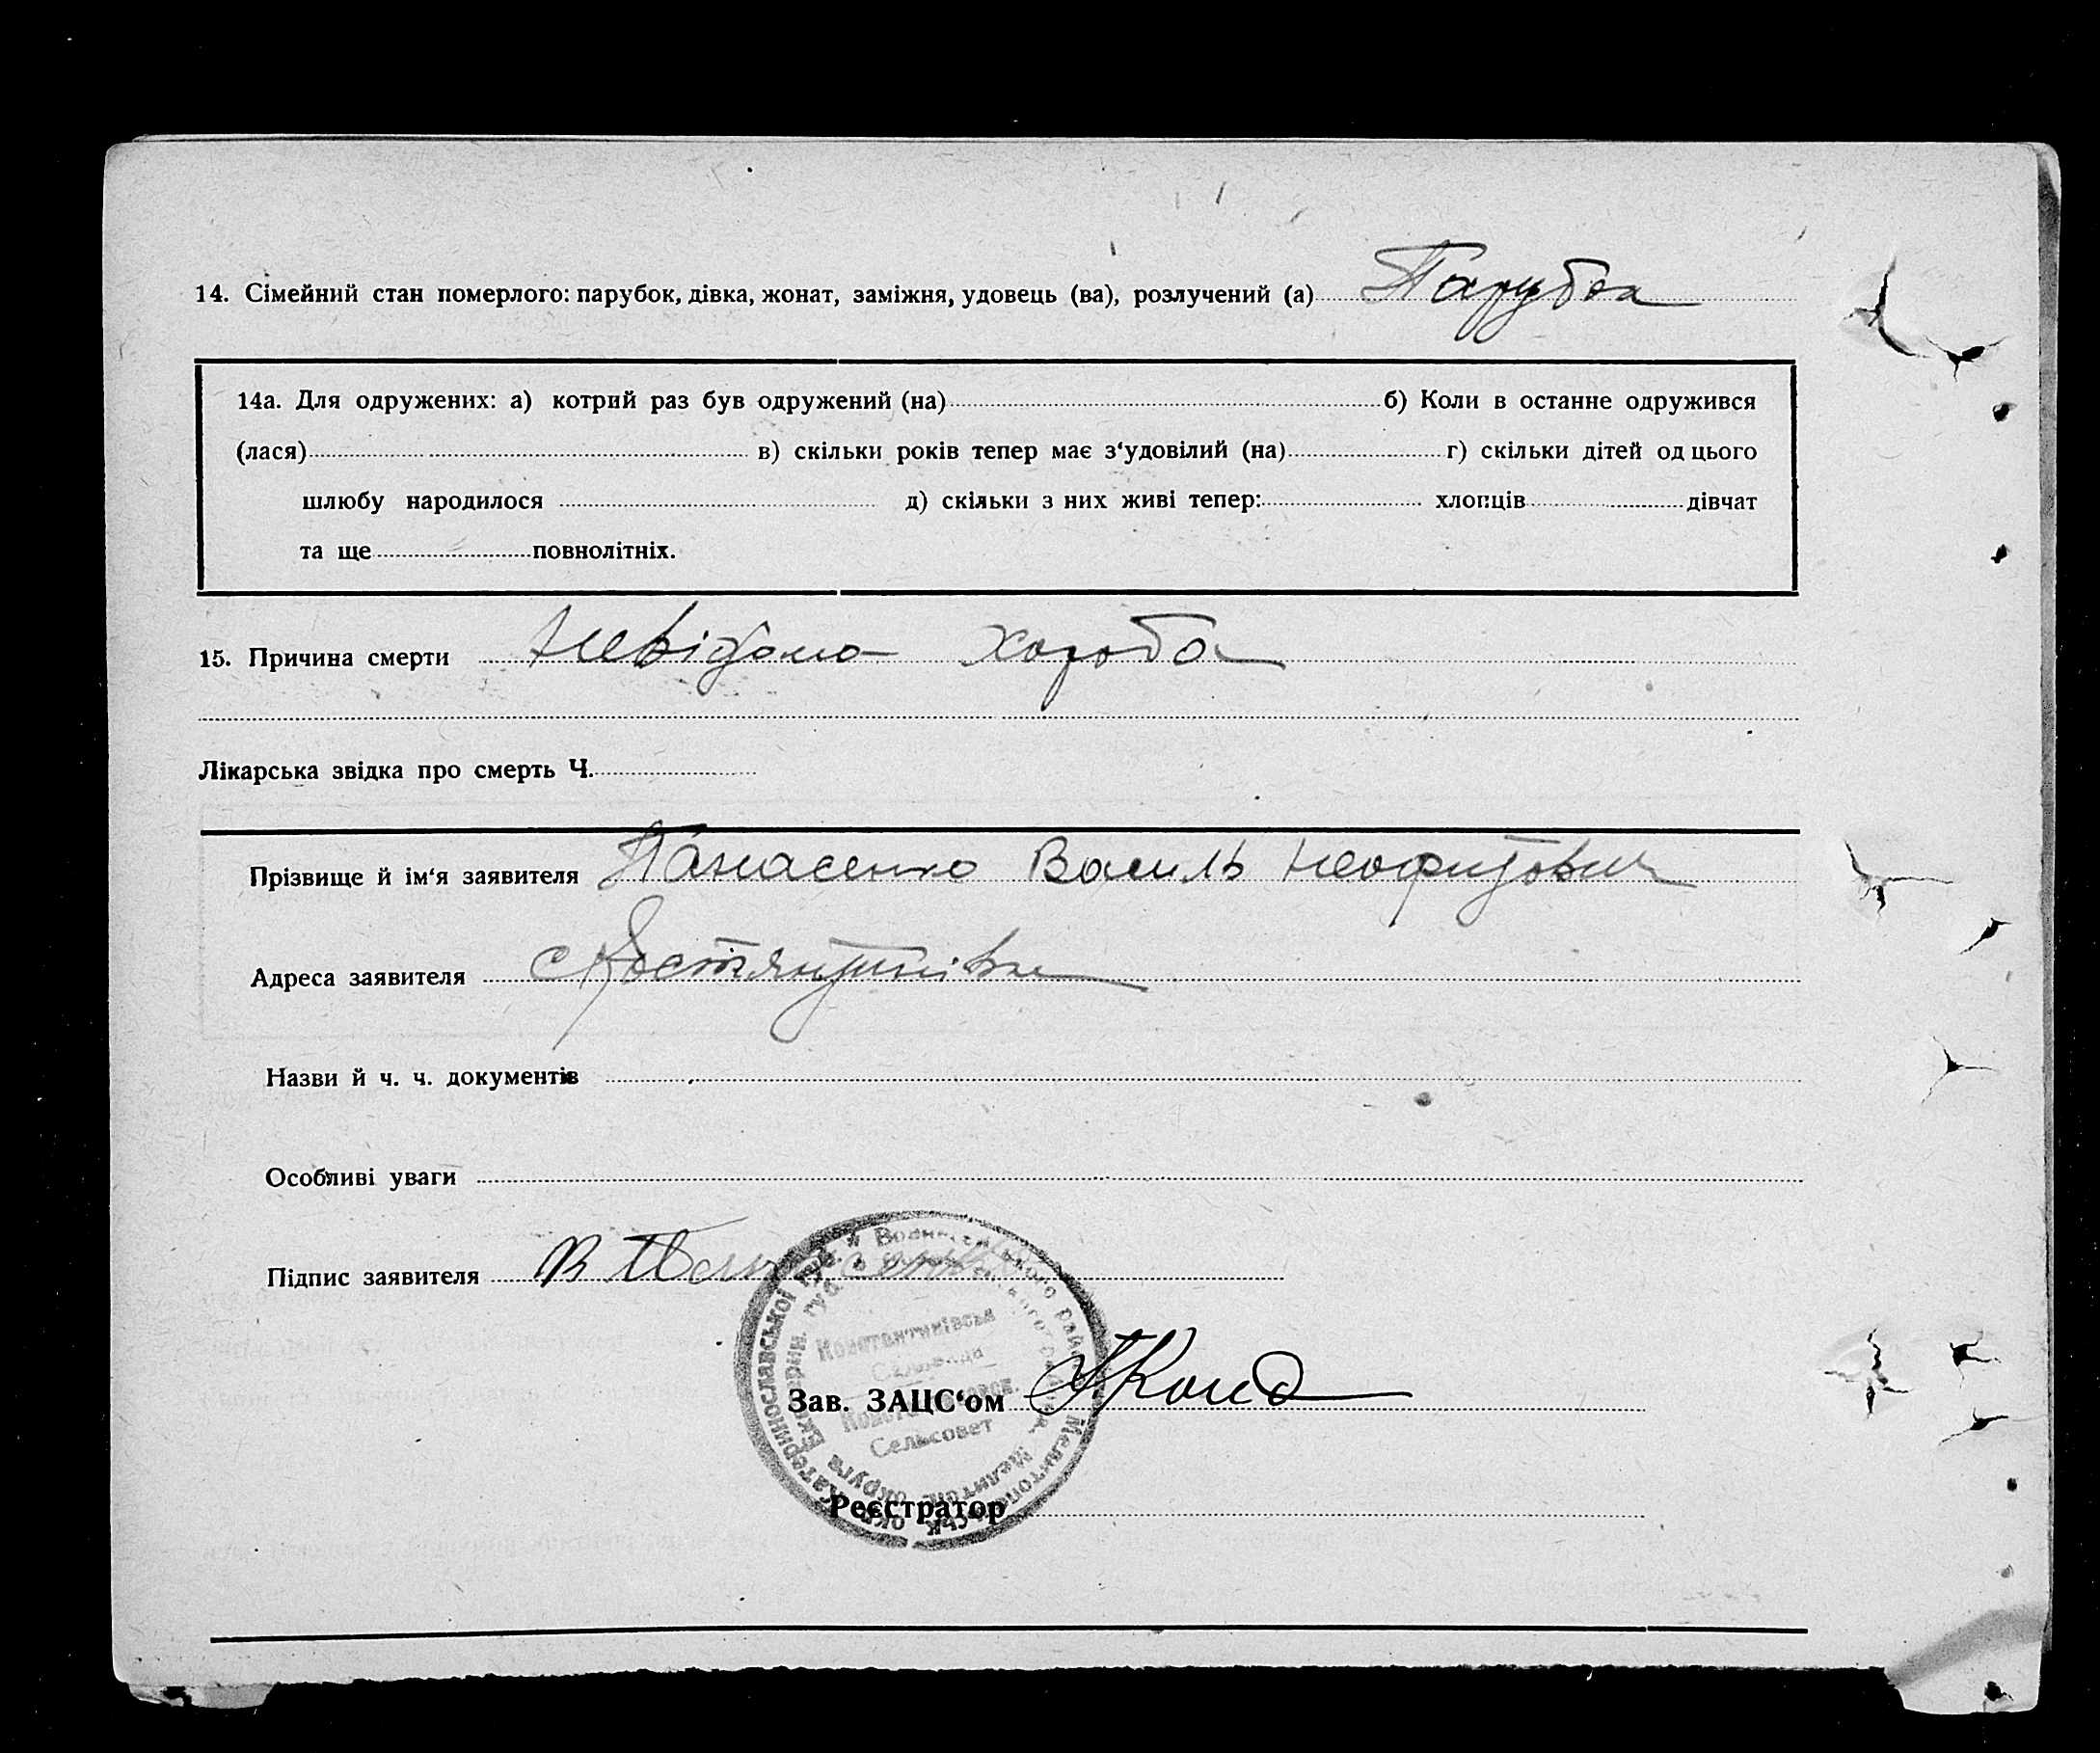 14. Сімейний стан померлого: парубок, дівка, жонат, заміжня, удовець (ва), розлучений (а) Парубок
14а. Для одружених: а) котрий раз був одружений (на) б) Коли в останне одружився
(лася) в) скільки років тепер має з‘удовілий (на) г) скільки дітей од цього
шлюбу народилося д) скільки з них живі тепер: хлопців дівчат
та ще повнолітніх.
15. Причина смерти Невідома хороба
Лікарська звідка про смерть Ч.
Прізвище й ім‘я заявителя Панасенко Василь Неофитович
Адреса заявителя с Костянтинівка
Назви й ч. ч. документів
Особливі уваги
Підпис заявителя В Панасенко
Константинівська
Сельсовет
Зав. ЗАЦС‘ом
Реєстратор